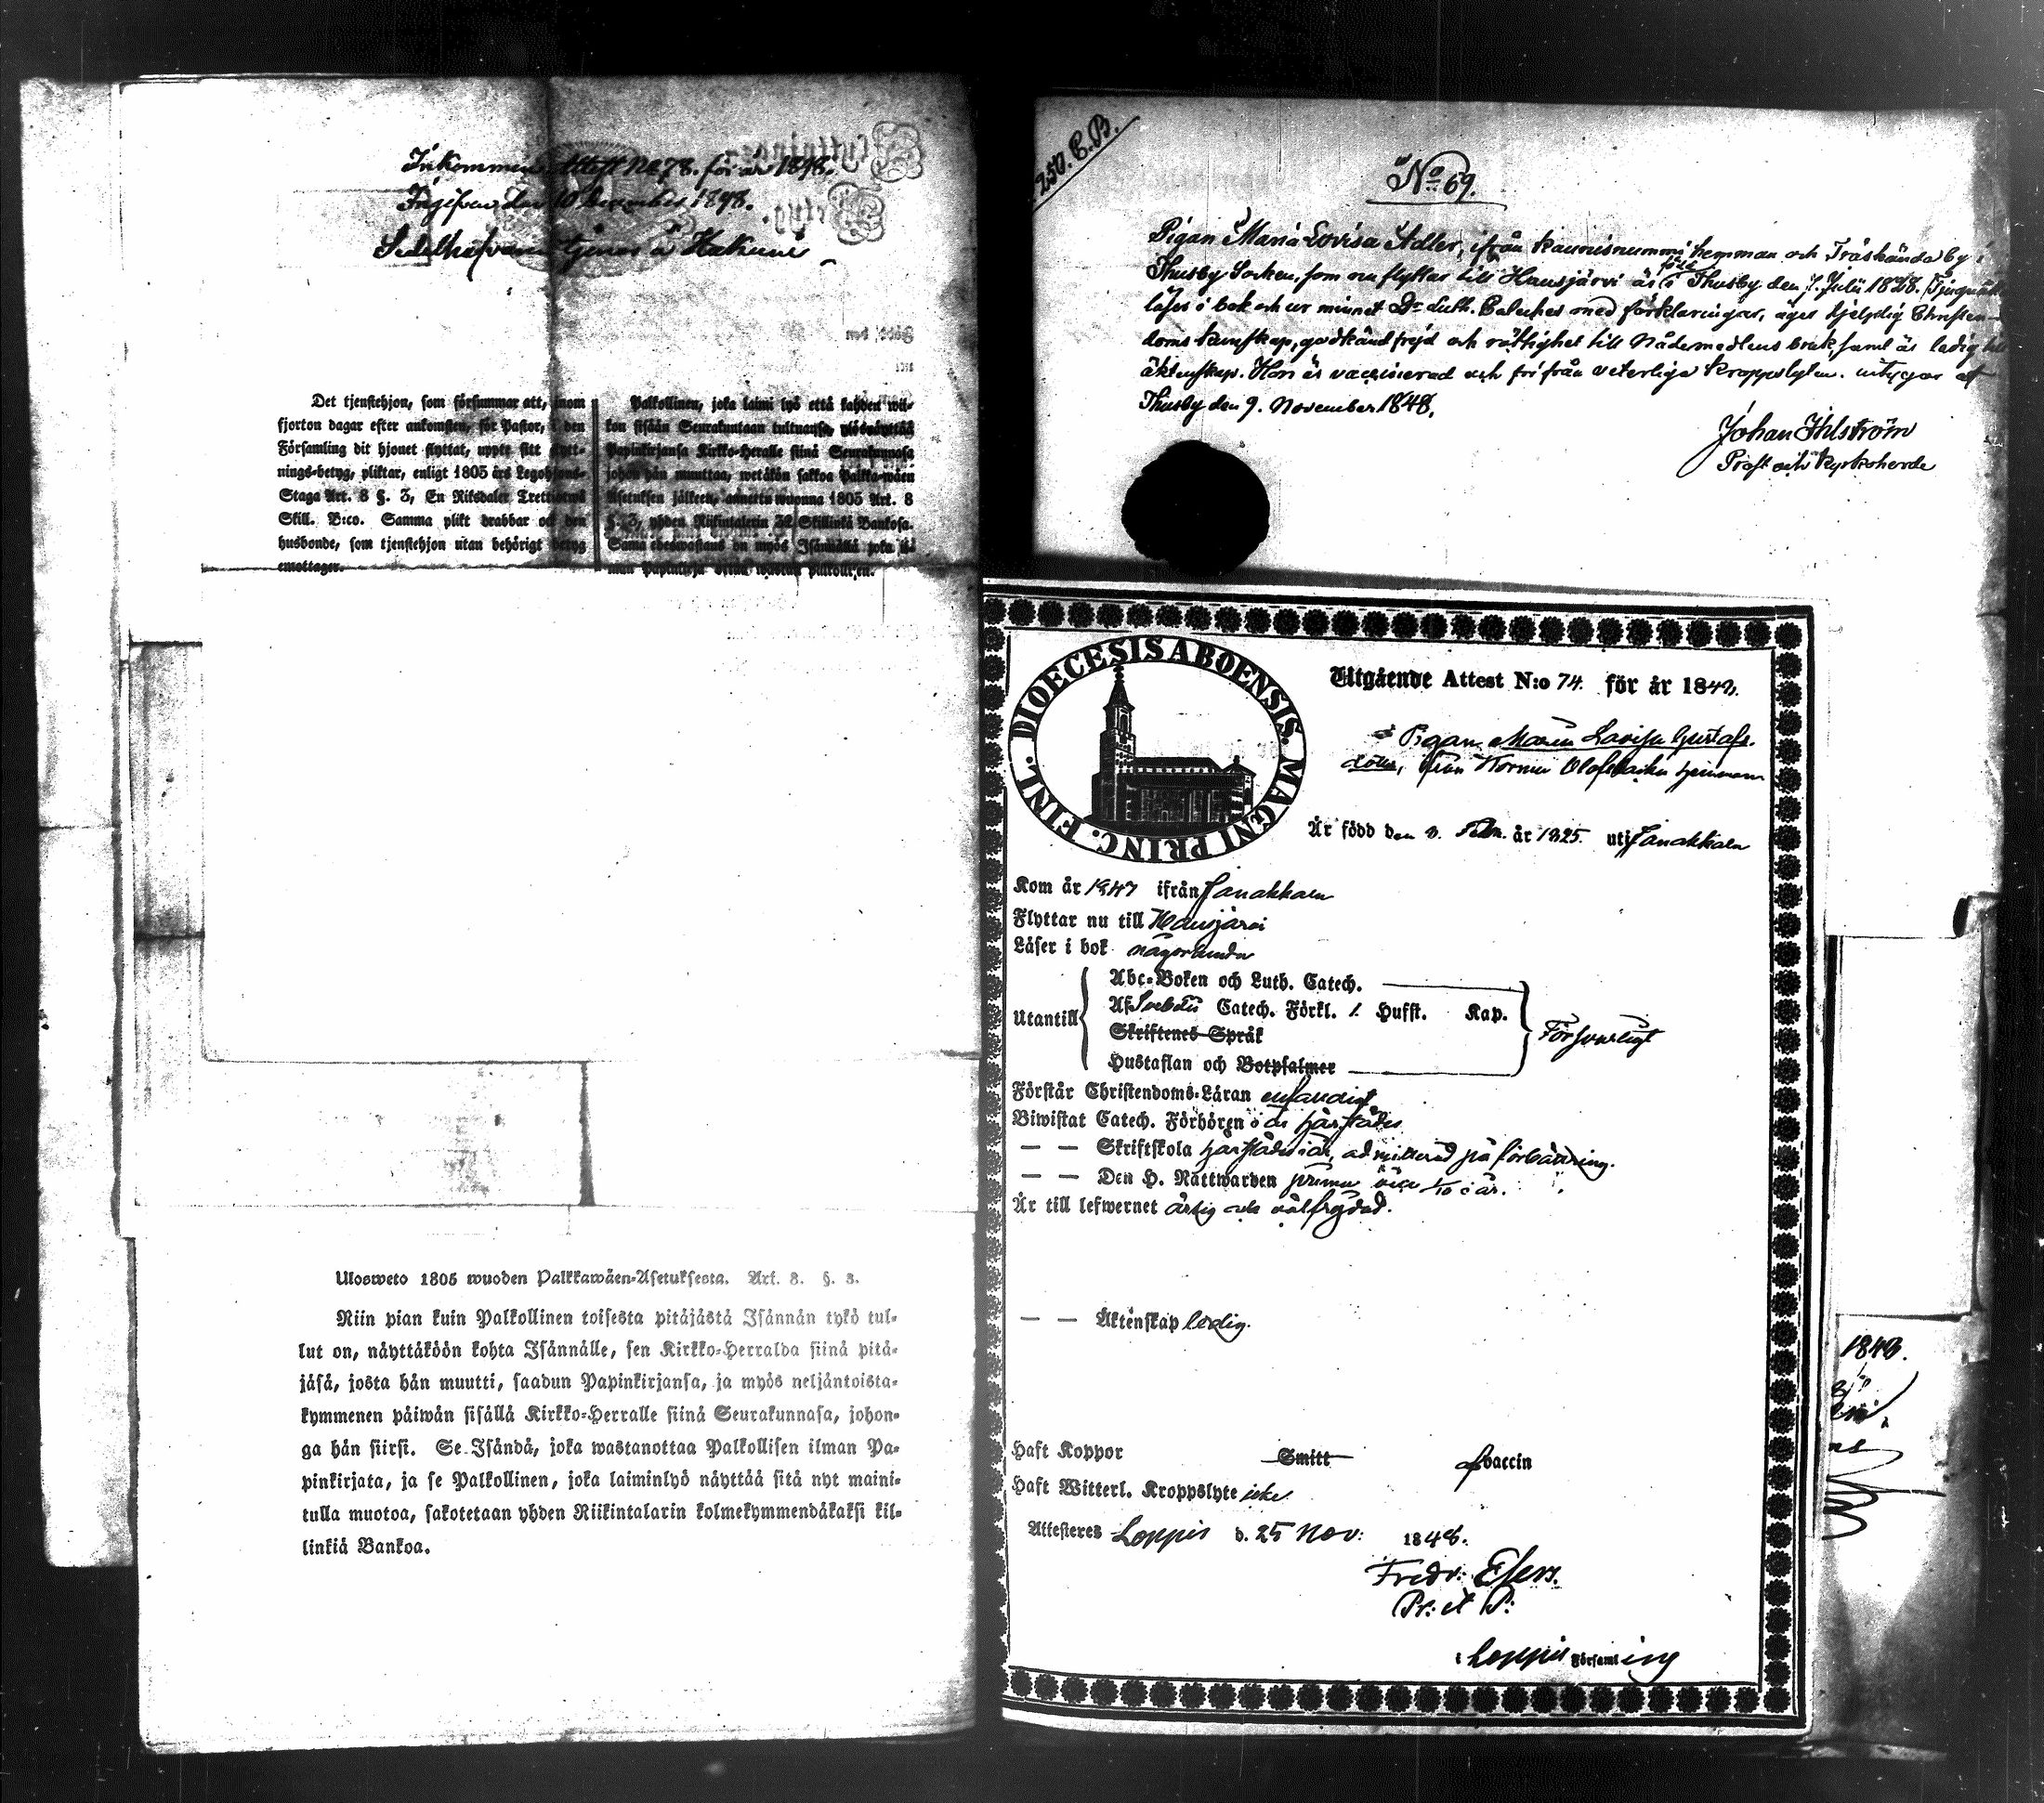 Inkommen Attest No 78. för år 1848.
Ingifven den 10 December 1848.
tjenar i
Det tjenstehjon, som försummar att, inom
fjorton dagar efter ankomsten, för Pastor, i den
Församling dit hjonet flyttat, uppte sitt flytt-
nings-betyg, pliktar, enligt 1805 års Legohjons-
Stäga Art. 8 §. 3, En Riksdaler Trettiotwå
Skill. B:co. Samma plikt drabbar ock den
husbonde, som tjenstehjon utan behörigt betyg
emottager.
Palkollinen, joka laimi lyö että kahden wii-
kon sisään Seurakuntaan tultuansa, ylösnäyttää
Papinkirjansa Kirkko-Heralle siinä Seurakunnasa
johon hän muuttaa, wetäkön sakkoa Palkka-wäen
Asetuksen jälkeen, annettu wuonna 1805 Art. 8
§. 3, yhden Riikintalerin 32 Skillinkiä Bankosa.
Sama edeswastaus on myös Isännällä joka il-
man Papinkirja ottaa wastan palkollisen.
Ulosweto 1805 wuoden Palkkawäen-Asetuksesta. Art. 8. §. 3.
Niin pian kuin Palkollinen toisesta pitäjästä Isännän tykö tul-
lut on, näyttäköön kohta Isännälle, sen Kirkko-Herralda siinä pitä-
jäsä, josta hän muutti, saadun Papinkirjansa, ja myös neljäntoista-
kymmenen päiwän sisällä Kirkko-Herralle siinä Seurakunnasa, johon-
ga hän siirsi. Se Isändä, joka wastanottaa Palkollisen ilman Pa-
pinkirjata, ja se Palkollinen, joka laiminlyö näyttää sitä nyt maini-
tulla muotoa, sakotetaan yhden Riikintalarin kolmekymmendäkaksi kil-
linkiä Bankoa.
250. C.B.
No 69.
Pigan Maria Lovisa Adler, ifrån Kaunisnummi hemman och Träskända by i
Thusby Socken, som nu flyttar till Hausjärvi är född i Thusby den 7. Julii 1828.
läser i bok och ur minnet Dr Luth. Catechес med förklaringar, äger hjelplig Christen-
doms kunskap, godkänd frejd och rättighet till Nådemedlens bruk, samt är ledig till
äktenskap. Hon är vaccinerad och fri från veterliga kroppslyten. intygar af
Thusby den 9. November 1848.
Johan Ihlström
Prost och Kyrkoherde
DIOECESIS ABOENSIS. MAGNI PRINC. FINL.
Utgående Attest N:o 74. för år 1848.
Pigan Maria Lovisa Gustafs-
dotter, från hemman
Är född den 3. Febr. år 1825. uti Janakkala
Kom år 1847 ifrån Janakkala
Flyttar nu till Hausjärvi
Läser i bok någorlunda
Utantill
Abc-Boken och Luth. Catech.
Af Svebelii Catech. Förkl. 1. Hufst. Kap.
Skriftenes Språk
Hustaflan och Botpsalmer
Försvarligt
Förstår Christendoms-Läran enfaldigt
Biwistat Catech. Förhören i år härstädes
— — Skriftskola härstädes i år, admitterad på förbättring.
— — Den H. Nattwarden prima vice i år.
Är till lefwernet ärlig och välfrejdad.
— — Äktenskap ledig.
Haft Koppor Smitt af vaccin
Haft Witterl. Kroppslyte icke
Attesteres Loppis d. 25 Nov: 1848.
Fredr. Elers.
Pr: et P:
i Loppis Församling
1848.